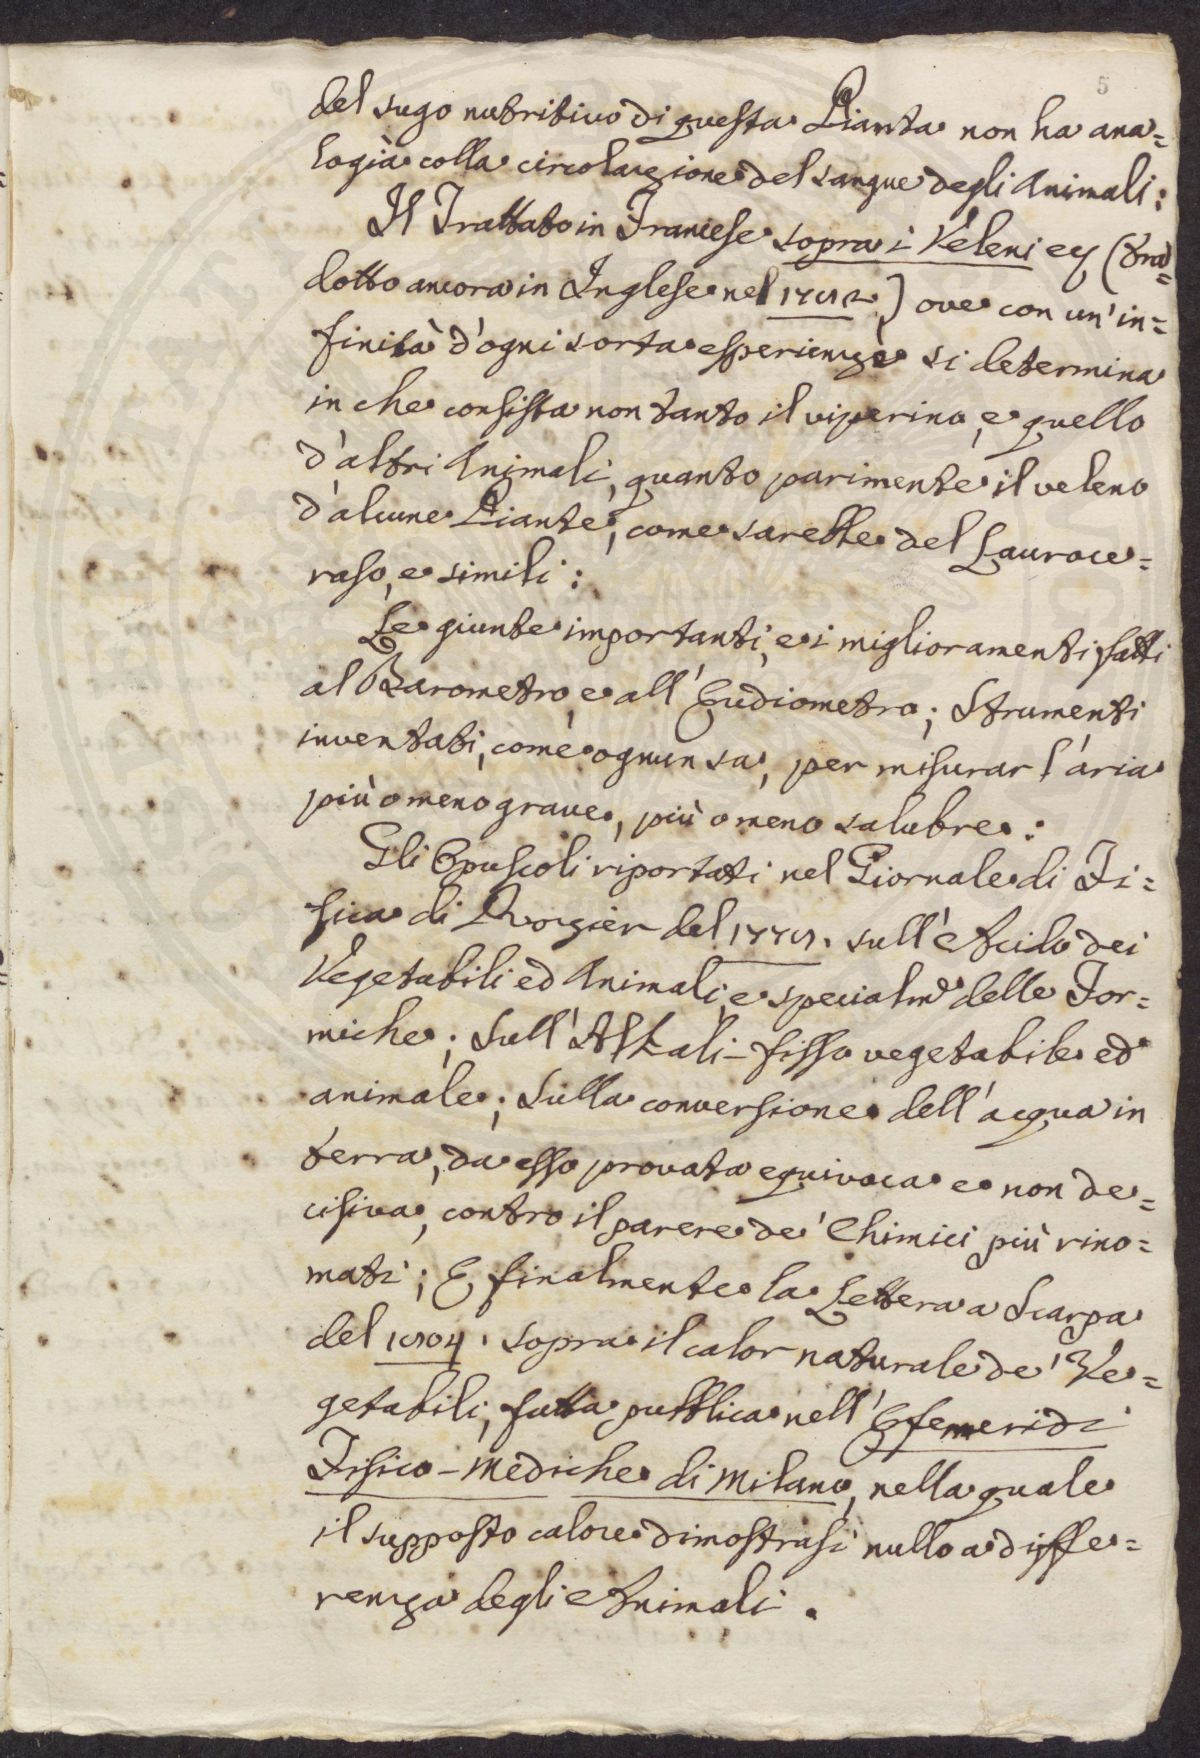 5
del sugo nutritivo di questa Pianta non ha ana=
logia colla circolazione del sangue degli Animali:
Il Trattato in Francese sopra i Veleni ec (tra=
dotto ancora in Inglese nel 1787) ove con un' in=
finità d'ogni sorta esperienze si determina
in che consista non tanto il viperino, e quello
d'altri Animali, quanto parimente il veleno
d'alcune Piante, come sarebbe del Lauroce=
raso, e simili:
Le giunte importanti, e i miglioramenti fatti
al Barometro, e all' Eudiometro; Strumenti
inventati, come ognun sa, per misurar l'aria
più o meno grave, più o meno salubre:
Gli Opuscoli riportati nel Giornale di Fi=
sica di Rozier del sull' Acido dei
Vegetabili ed Animali, e specialm.e delle For=
miche; Sull' Alkali-fisso vegetabile ed
animale; Sulla conversione dell' acqua in
terra, da esso provata equivoca e non de=
cisiva, contro il parere de' Chimici più rino=
mati; E finalmente la Lettera a Scarpa
del 1804. sopra il calor naturale de' Ve=
getabili, fatta pubblica nell' Efemeridi
Fisico-Mediche di Milano, nella quale
il supposto calore dimostrasi nullo a diffe=
renza degli Animali.